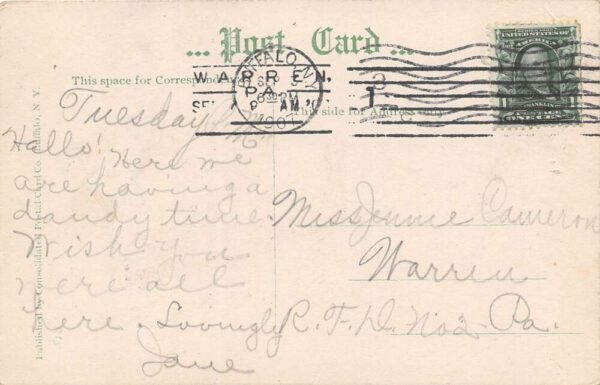 Post Card
This space for Correspondence
This side for Address only
BUFFALO, N.Y.
1907
WARREN,
PA.
AM
UNITED STATES OF
AMERICA
FRANKLIN
ONE CENT
Tuesday
Hallo! Here we
are having a
dandy time.
Wish you
were all
here. Lovingly
Jane
Miss Jennie Cameron
Warren
R.F.D. No 2 Pa.
Published by Consolidated Postal Card Co. Buffalo, N. Y.